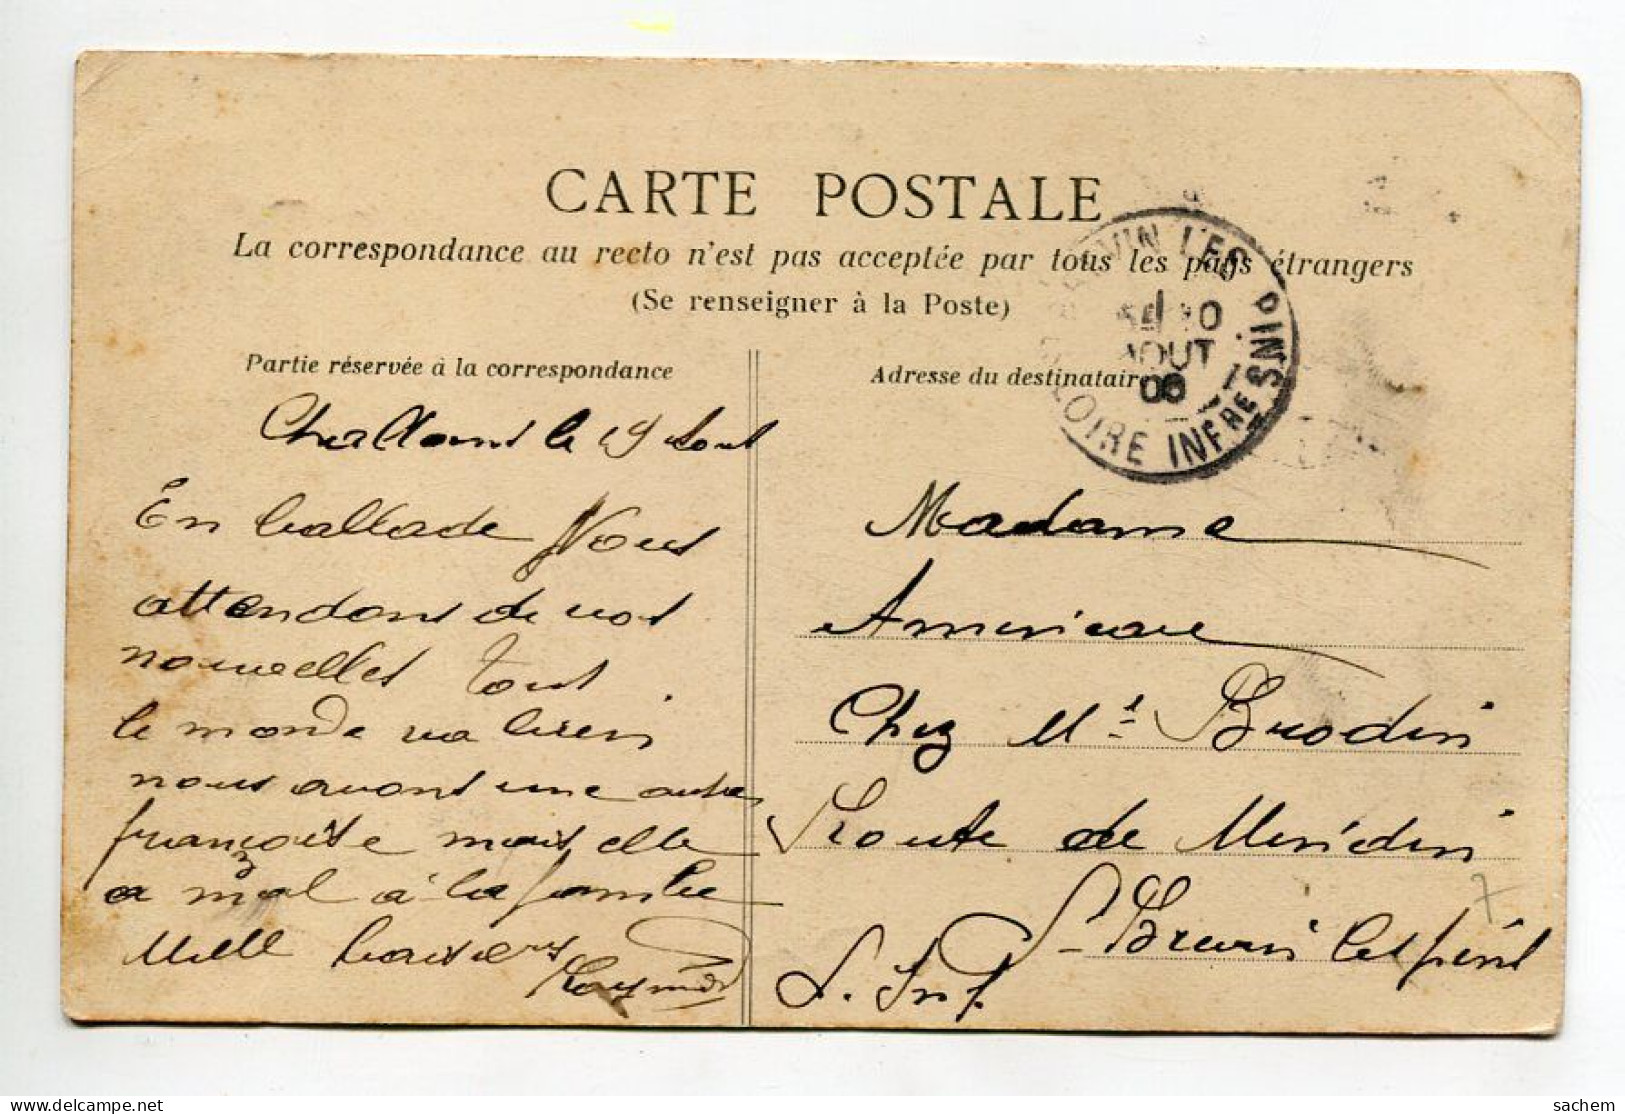 CARTE POSTALE
La correspondance au recto n'est pas acceptée par tous les pays étrangers
(Se renseigner à la Poste)
Partie réservée à la correspondance
le 19 Aout
En ballade Nous
attendons de vos
nouvelles Tout
le monde va bien
nous avons une autre
françoise mais elle
a mal à la famille
Mille baisers
Raymond
Adresse du destinataire
VIN LES PINS
LOIRE INFRE
AOUT
06
Madame
Chez Mr Brodin
Route de
St Brevin les pins
L. Inf.
sachem